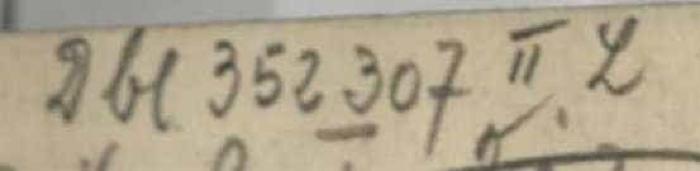 Dbl 352307 II L